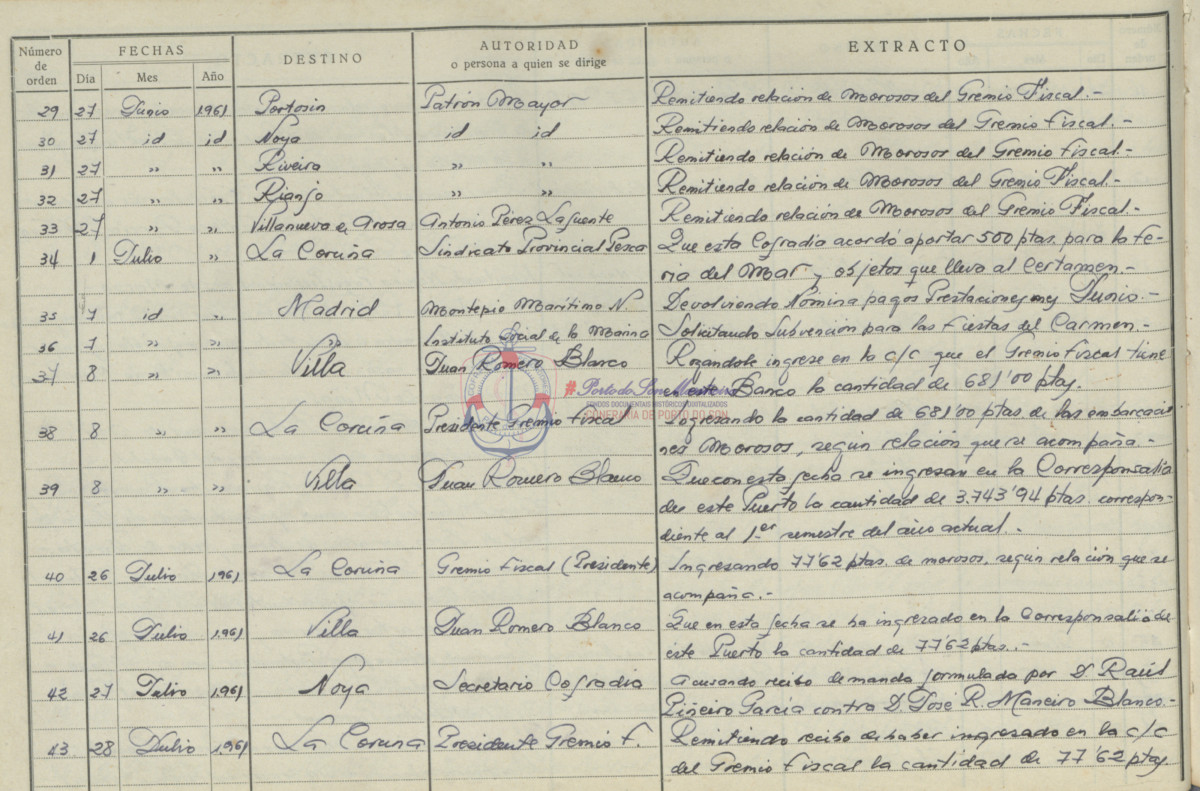 Número de orden FECHAS DESTINO AUTORIDAD o persona a quien se dirige EXTRACTO
Día Mes Año
29 27 Junio 1961 Portosin Patrón Mayor Remitiendo relación de Morosos del Gremio Fiscal.-
30 27 id id Noya id id Remitiendo relación de Morosos del Gremio Fiscal.-
31 27 » » Riveira » » Remitiendo relación de Morosos del Gremio Fiscal.-
32 27 » » Rianjo » » Remitiendo relación de Morosos del Gremio Fiscal.-
33 27 » » Villanueva de Arosa Antonio Pérez Lafuente Remitiendo relación de Morosos del Gremio Fiscal.-
34 1 Julio » La Coruña Sindicato Provincial Pesca Que esta Cofradia acordó aportar 500 ptas. para la Fe-
ria del Mar y objetos que lleva al Certamen.-
35 7 id » Madrid Montepio Marítimo N. Devolviendo Nómina pagos Prestaciones mes Junio.-
36 7 » » » Instituto Social de la Marina Solicitando Subvención para las Fiestas del Carmen.-
37 8 » » Villa Juan Romero Blanco Rogándole ingrese en la c/c que el Gremio Fiscal tiene
en este Banco la cantidad de 681'00 ptas.
#PortodoSonMariñeiro
FONDOS DOCUMENTAIS HISTÓRICOS DIXITALIZADOS
CONFRARÍA DE PORTO DO SON
38 8 » » La Coruña Presidente Gremio Fiscal Ingresando la cantidad de 681'00 ptas. de las embarcacio-
nes Morosos, según relación que se acompaña.-
39 8 » » Villa Juan Romero Blanco Que con esta fecha se ingresan en la Corresponsalia
de este Puerto la cantidad de 3.743'94 ptas. correspon-
diente al 1.er semestre del año actual.-
40 26 Julio 1961 La Coruña Gremio Fiscal (Presidente) Ingresando 77'62 ptas. de morosos, según relación que se
acompaña.-
41 26 Julio 1.961 Villa Juan Romero Blanco Que en esta fecha se ha ingresado en la Corresponsalia de
este Puerto la cantidad de 77'62 ptas..-
42 27 Julio 1.961 Noya Secretario Cofradia Acusando recibo demanda formulada por D. Raúl
Piñeiro García contra D. José R. Maneiro Blanco.-
43 28 Julio 1.961 La Coruña Presidente Gremio F. Remitiendo recibo de haber ingresado en la c/c
del Gremio Fiscal la cantidad de 77'62 ptas.